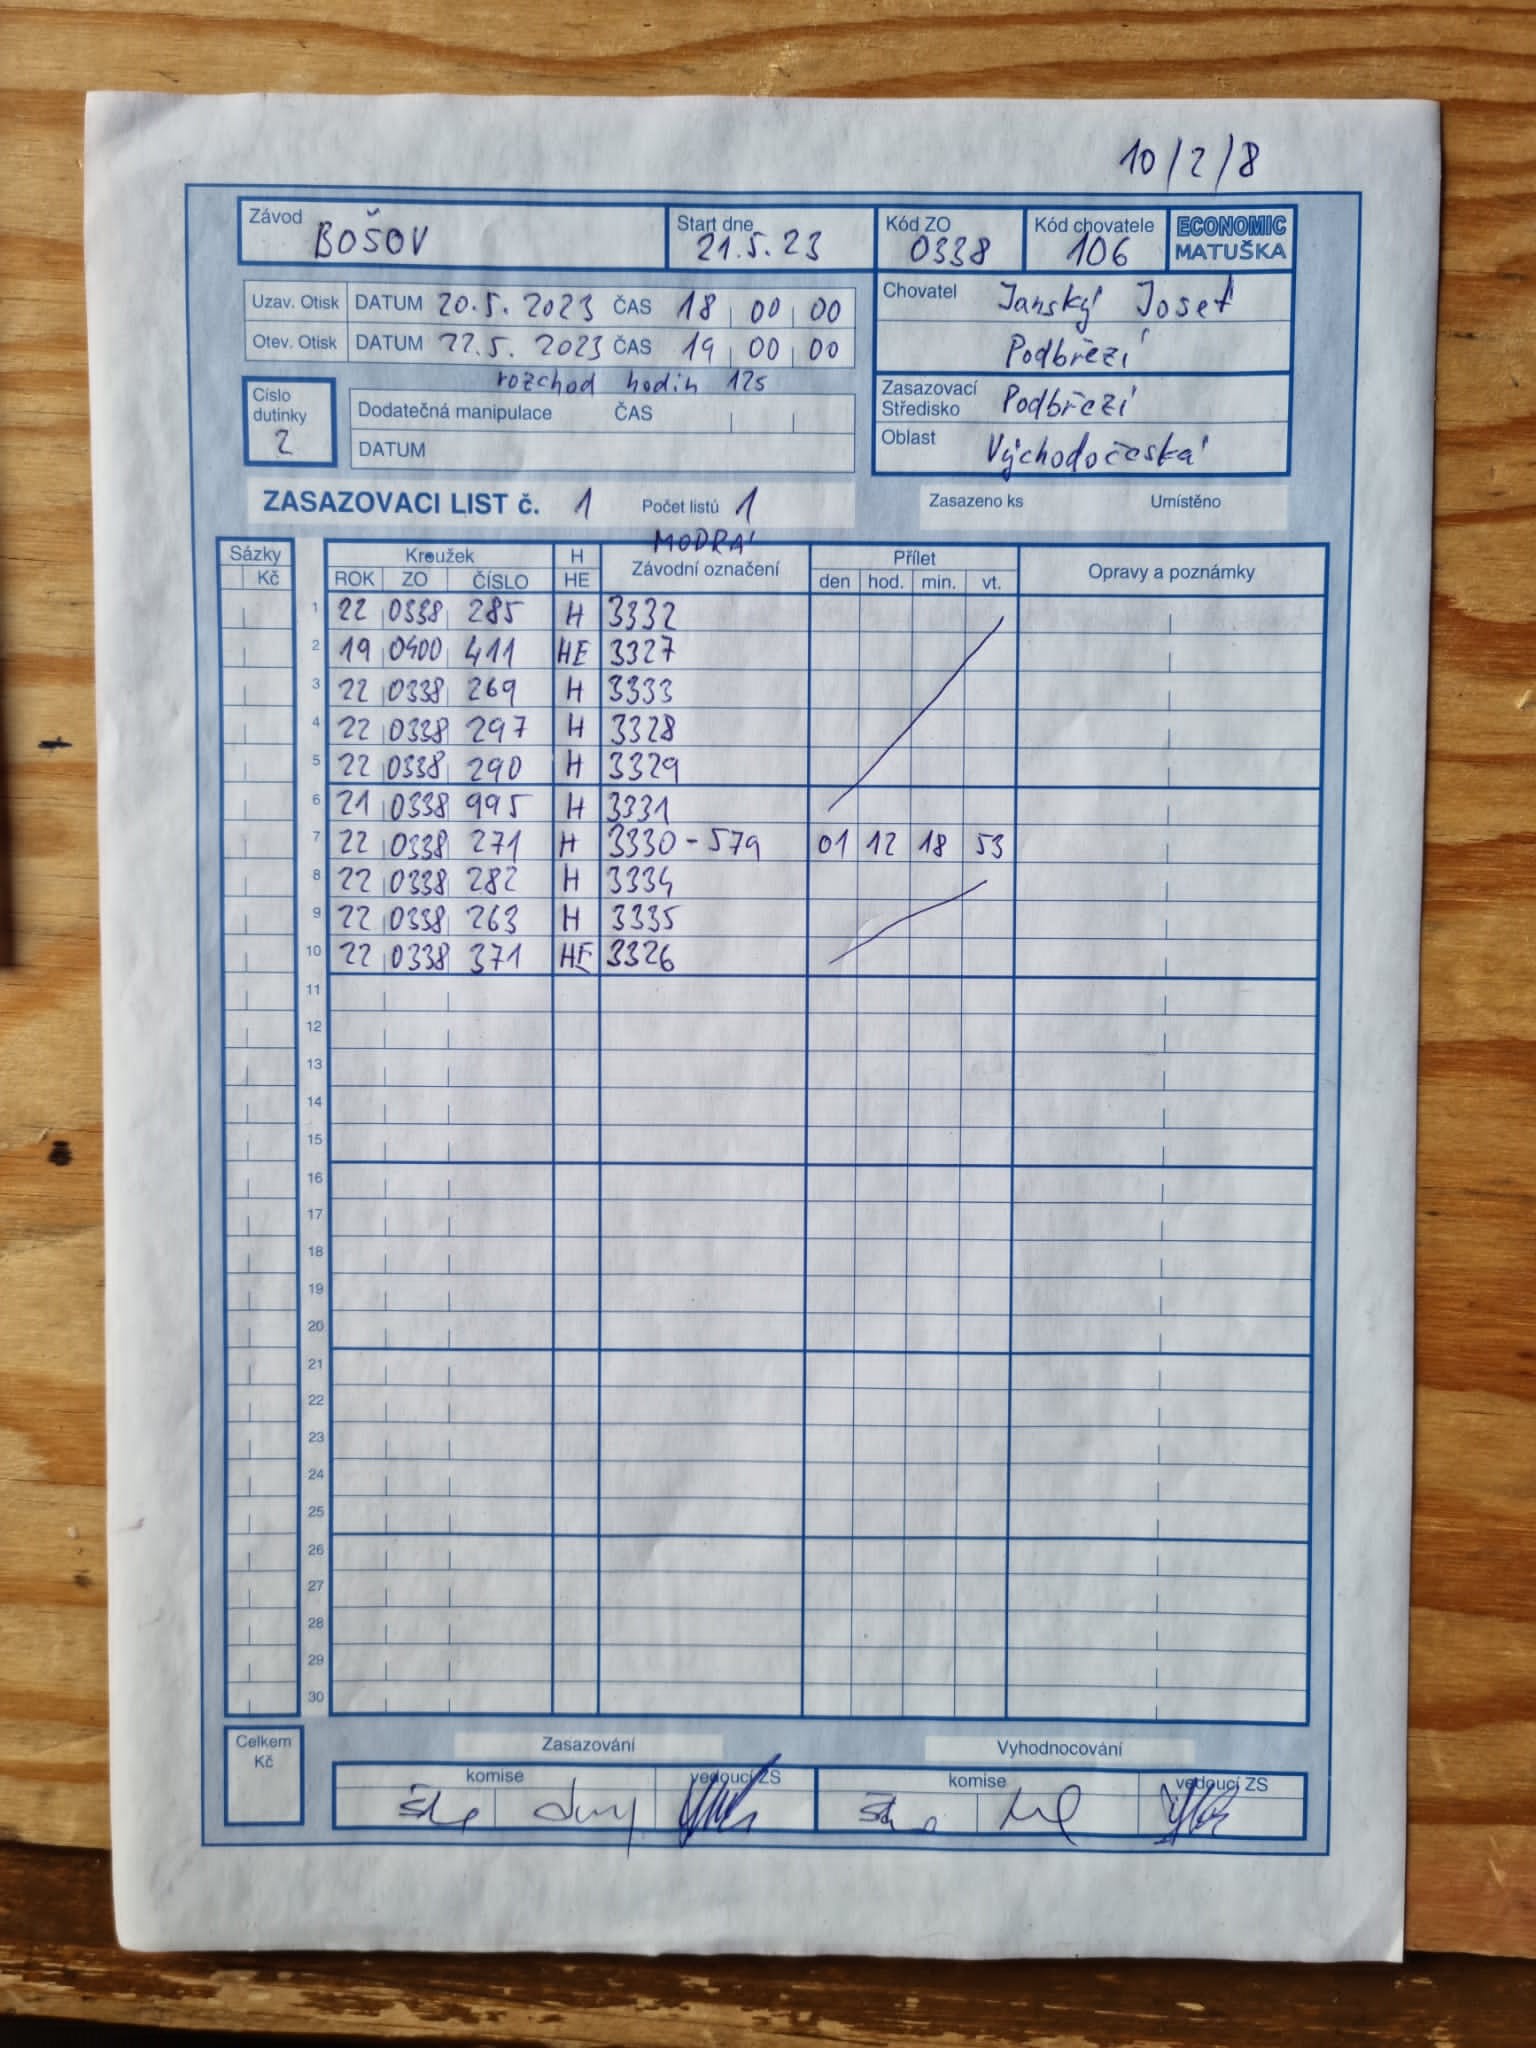 10/2/8
Závod BOŠOV Start dne 21.5.23 Kód ZO 0338 Kód chovatele 106 ECONOMIC MATUŠKA
Uzav. Otisk DATUM 20.5. 2023 ČAS 18 00 00
Otev. Otisk DATUM 22.5. 2023 ČAS 19 00 00
rozchod hodin 12s
Chovatel Janský Josef
Podbřezí
Číslo dutinky 2
Dodatečná manipulace ČAS
DATUM
Zasazovací Středisko Podbřezí
Oblast Východočeská
ZASAZOVACI LIST č. 1 Počet listů 1
Zasazeno ks Umístěno
MODRÁ
Sázky Kroužek H Závodní označení Přílet Opravy a poznámky
Kč ROK ZO ČÍSLO HE den hod. min. vt.
1 22 0338 285 H 3332
2 19 0400 411 HE 3327
3 22 0338 269 H 3333
4 22 0338 297 H 3328
5 22 0338 290 H 3329
6 21 0338 995 H 3331
7 22 0338 271 H 3330 - 579 01 12 18 53
8 22 0338 282 H 3334
9 22 0338 263 H 3335
10 22 0338 371 HE 3326
11
12
13
14
15
16
17
18
19
20
21
22
23
24
25
26
27
28
29
30
Celkem Kč
Zasazování Vyhodnocování
komise vedoucí ZS komise vedoucí ZS